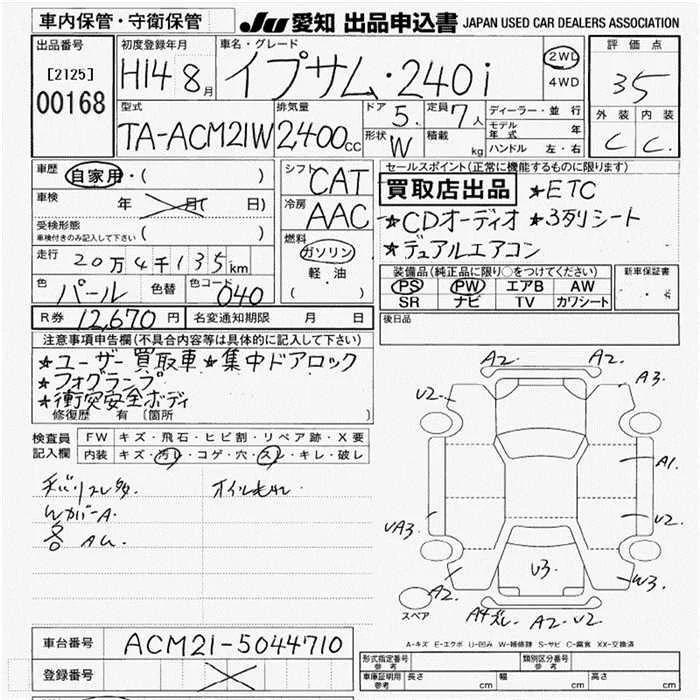 車内保管・守衛保管
JU 愛知 出品申込書 JAPAN USED CAR DEALERS ASSOCIATION
出品番号
[2125]
00168
初度登録年月
H14 8月
車名・グレード
イプサム・240i
2WD
4WD
評価点
35
外装 内装
C C
型式
TA-ACM21W
排気量
2,400cc
ドア 5
形状 W
定員 7人
積載 kg
ディーラー・並行
モデル年式 年
ハンドル 左・右
車歴 自家用・( )
車検 年 月( 日)
受検形態
車検付きのみ記入して下さい ( )
走行 20万4千135km
色 パール 色替 色コード 040
シフト CAT
冷房 AAC
燃料
ガソリン
軽・油
( )
セールスポイント(正常に機能するものに限ります)
買取店出品 ★ETC
★CDオーディオ ★3列シート
★デュアルエアコン
装備品(純正品に限り○をつけてください)
PS PW エアB AW
SR ナビ TV カワシート
新車保証書
R券 12,670円 名変通知期限 月 日
後日品
注意事項申告欄(不具合内容等は具体的に記入して下さい)
★ユーザー買取車 ★集中ドアロック
★フォグランプ
★衝突安全ボディ
修復歴 有 〔箇所 〕
検査員記入欄
FW キズ・飛石・ヒビ割・リペア跡・X要
内装 キズ・汚レ・コゲ・穴・スレ・キレ・破レ
オイルもれ
A2 A2
U2 A3
A1
UA3 U2
U3
A2 W3
スペア
A4ズレ A2-U2
A-キズ E-エクボ U-凹み W-補修跡 S-サビ C-腐食 XX-交換済
車台番号 ACM21-5044710
登録番号
形式指定番号 参考
類別区分番号 参考
車庫証明用 参考 長さ cm 幅 cm 高さ cm